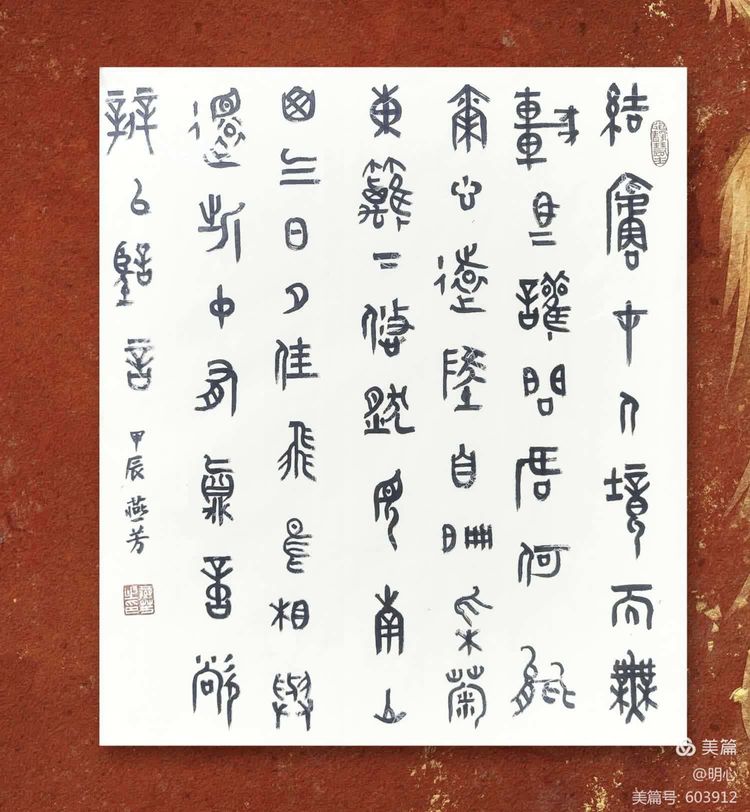 結廬在人境而無
車馬喧問君何能
爾心遠地自偏采菊
東籬下悠然見南山
山气日夕佳飛鳥相與
還此中有真意欲
辨已忘言
甲辰燕芳
美篇
@明心
美篇号: 603912